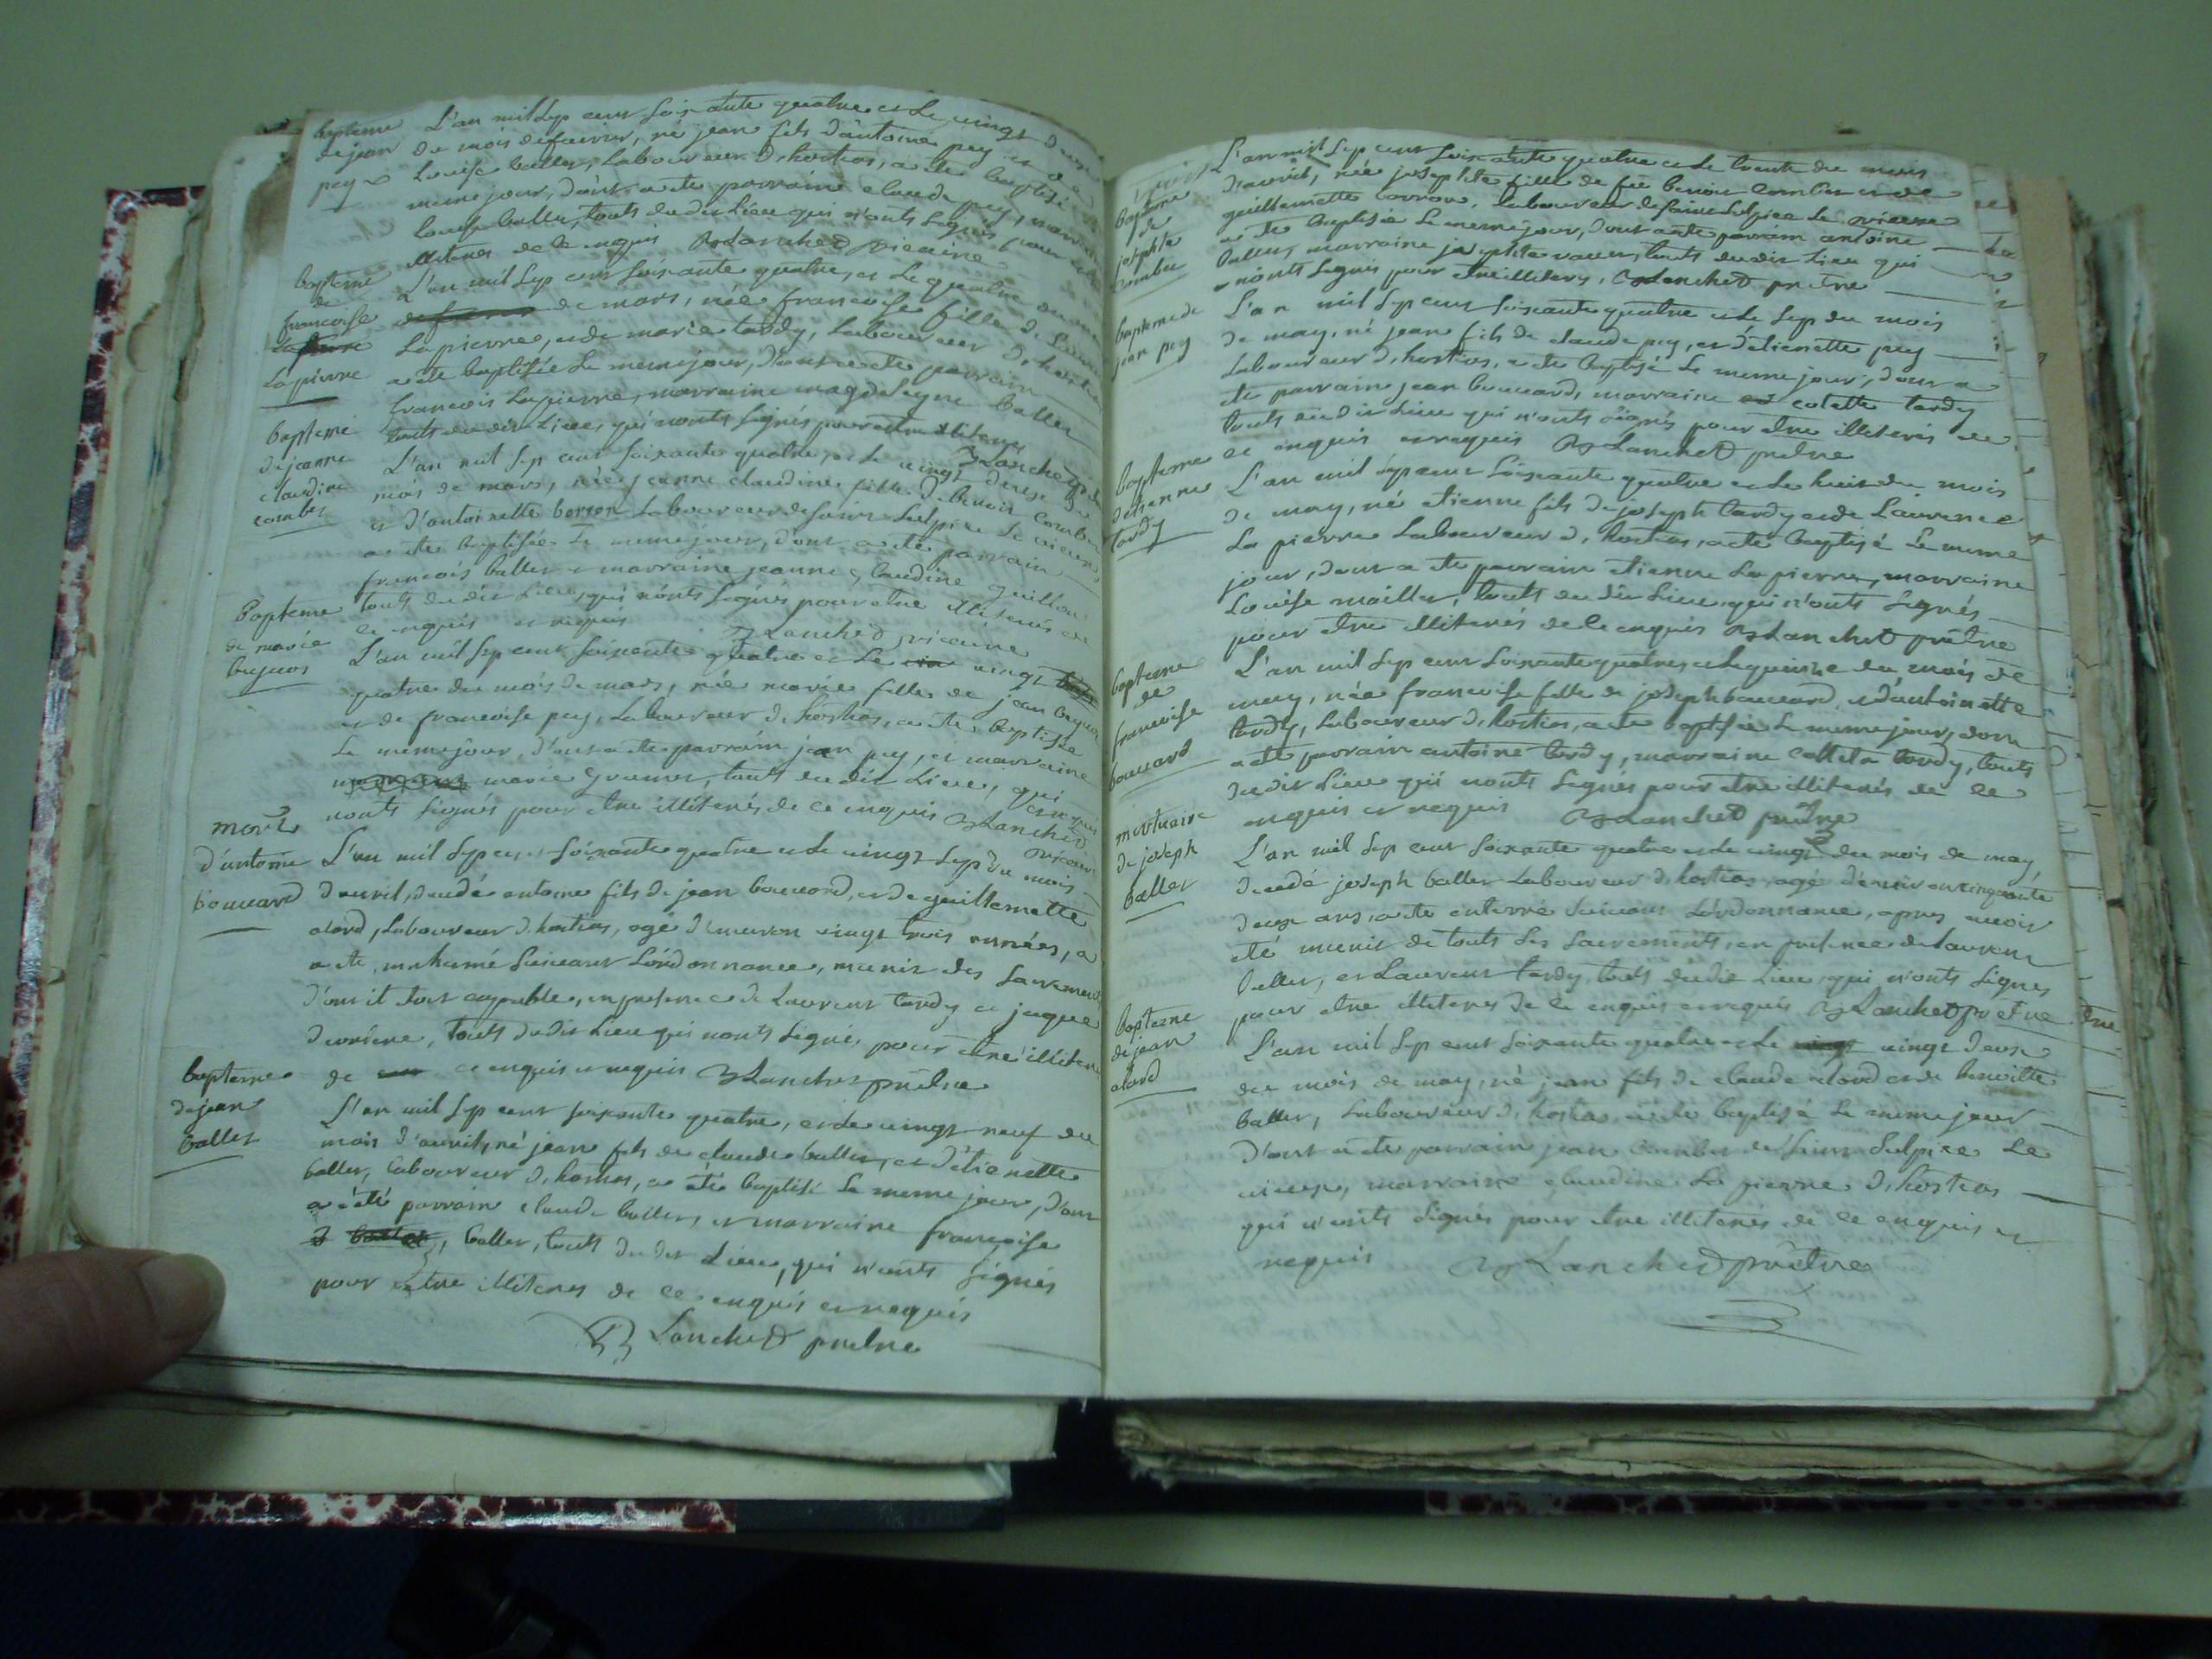 bapteme
de jean
pey
L'an mil sep cent soixante quatre et le vingt deux
du mois de fevrier, né jean fils d'antoine pey et de
Louise ballet, Laboureur d'hostias, a ete baptisé
meme jour, dont a ete parrain claude pey, marraine
Louise ballet, touts du dit Lieu qui n'onts signés pour
illiterés de ce enquis Blanchet vicaire
bapteme
de
francoise
Lapierre
L'an mil sep cent soixante quatre, et le quatre du
de mars, née francoise fille de
Lapierre, et de marie tardy, Laboureur d'hostias
a ete baptisée Le meme jour, dont a ete parrain
francois Lapierre, marraine magdeleyne ballet
touts du dit Lieu, qui n'onts signés pour etre illiterés
Blanchet
bapteme
de jeanne
claudine
combet
L'an mil sep cent soixante quatre, et le vingt deux du
mois de mars, née jeanne claudine fille de benoit combet
et d'antoinette Laboureur de saint Sulpice Le vieux,
a ete baptisée Le meme jour, dont a ete parrain
francois ballet et marraine jeanne claudine
touts du dit Lieu, qui n'onts signés pour etre illiterés de
ce enquis et requis Blanchet vicaire
Bapteme
de marie
buquos
L'an mil sep cent soixante quatre et Le vingt
quatre du mois de mars, née marie fille de jean
et de francoise pey, Laboureur d'hostias, a ete baptisée
Le meme jour, dont a ete parrain jean pey, et marraine
marie touts du dit Lieu, qui
n'onts signés pour etre illiterés, de ce enquis et requis
Blanchet vicaire
mort
d'antoine
bouvard
L'an mil sep cent soixante quatre et le vingt sep du mois
d'avril, decedé antoine fils de jean bouvard, et de guillemette
alard, Laboureur d'hostias, agé d'environ vingt trois années, a
ete inhumé suivant L'ordonnance, munis des sacrements
dont il etoit capable, en presence de Laurent tardy et jaque
touts du dit Lieu qui n'onts signés pour etre illiterés
de ce enquis et requis Blanchet prêtre
bapteme
de jean
ballet
L'an mil sep cent soixante quatre, et Le vingt neuf du
mois d'avril, né jean fils de claude ballet, et d'etienette
ballet, Laboureur d'hostias, a été baptisé Le meme jour, dont
a été parrain claude ballet, et marraine francoise
ballet, touts du dit Lieu, qui n'onts signés
pour etre illiterés de ce enquis et requis
Blanchet prêtre
Bapteme
de
josephte
combet
L'an mil sep cent soixante quatre et Le trente du mois
d'avril, née josephte fille de feu benoit combet et de
guillemette Laboureur de saint Sulpice Le vieux
a ete baptisée Le meme jour, dont a ete parrain antoine
ballet, marraine josephte touts du dit Lieu qui
n'onts signés pour etre illiterés, Blanchet prêtre
bapteme de
jean pey
L'an mil sep cent soixante quatre et Le sep du mois
de may, né jean fils de claude pey, et d'etienette pey
Laboureur d'hostias, a ete baptisé Le meme jour, dont a
ete parrain jean bouvard, marraine colette tardy
touts du dit Lieu qui n'onts signés pour etre illiterés de
ce enquis et requis Blanchet prêtre
bapteme
d'etienne
tardy
L'an mil sep cent soixante quatre et Le huit du mois
de may, né etienne fils de joseph tardy et de Laurence
La pierre Laboureur d'hostias, a ete baptisé Le meme
jour, dont a ete parrain etienne La pierre, marraine
Louise maillet, touts du dit Lieu, qui n'onts signés
pour etre illiterés de ce enquis Blanchet prêtre
bapteme
de
francoise
bouvard
L'an mil sep cent soixante quatre, et Le quinze du mois de
may, née francoise fille de joseph bouvard, et d'antoinette
tardy, Laboureur d'hostias, a ete baptisée Le meme jour, dont
a ete parrain antoine tardy, marraine tardy, touts
du dit Lieu qui n'onts signés pour etre illiterés de ce
enquis et requis Blanchet prêtre
mortuaire
de joseph
ballet
L'an mil sep cent soixante quatre et Le vingt du mois de may
decedé joseph ballet Laboureur d'hostias, agé d'environ cinquante
deux ans, a ete enterré suivant L'ordonnance, apres avoir
eté munit de touts Les sacrements, en presence de Laurent
ballet, et Laurent tardy, touts du dit Lieu, qui n'onts signés
pour etre illiterés de ce enquis et requis Blanchet prêtre
bapteme
de jean
alard
L'an mil sep cent soixante quatre et Le vingt deux
du mois de may, né jean fils de claude alard et de benoitte
ballet, Laboureur d'hostias, a ete baptisé Le meme jour
dont a ete parrain jean combet de saint Sulpice Le
vieux, marraine claudine La pierre d'hostias
qui n'onts signés pour etre illiterés de ce enquis et
requis Blanchet prêtre